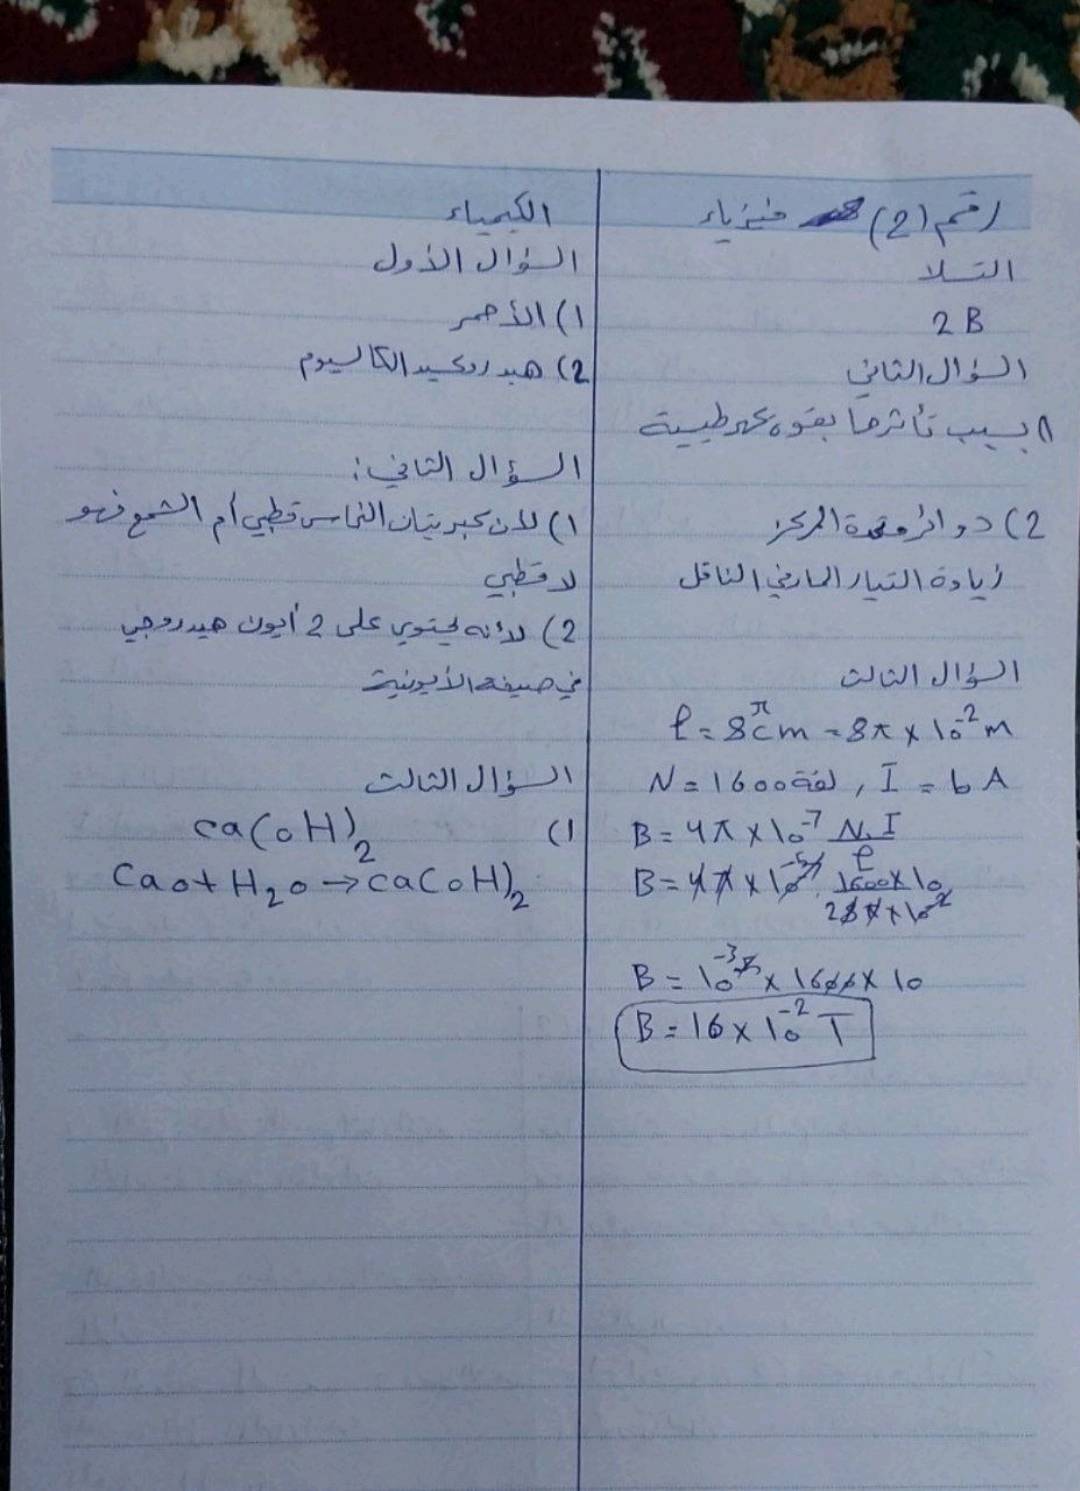 رقم (2) فيزياء
التسلا
2 B
السؤال الثاني
1) بسبب تأثرها بقوة كهرطيسية
2) دوائر متحدة المركز
زيادة التيار المار في الناقل
السؤال الثالث
ℓ = 8π cm = 8π × 10⁻² m
N = 1600 لفة , I = 6 A
B = 4π × 10⁻⁷ N.I / ℓ
B = 4π × 10⁻⁷ . 1600 × 10 / 28π × 10⁻²
B = 10⁻³ × 1600 × 10
B = 16 × 10⁻² T
الكيمياء
السؤال الأول
1) الأحمر
2) هيدروكسيد الكالسيوم
السؤال الثاني:
1) لان كبريتات النحاس قطبي أم الشمع فهو
لا قطبي
2) لأنه يحتوي على 2 أيون هيدروجي
في صيغه الأيونية
السؤال الثالث
1) ca(oH)₂
Cao + H₂o → ca(oH)₂